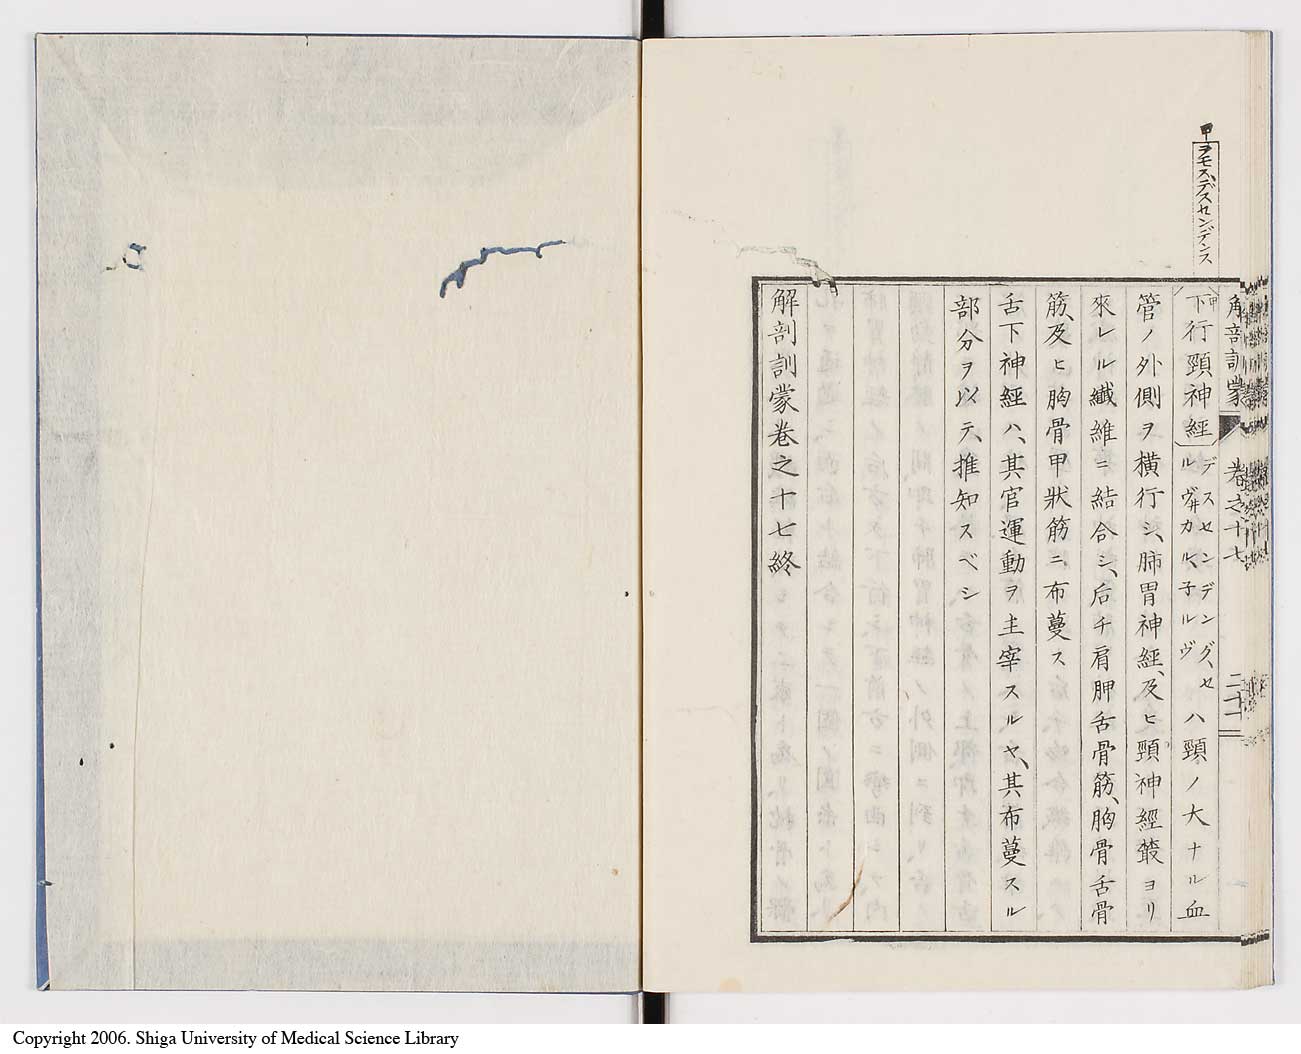 甲ラモス、デスセンデンス
解剖訓蒙 卷之十七 二十二
甲
下行頸神經 デスセンデング、セ
ルヴ井カル、子ルヴ ハ頸ノ大ナル血
管ノ外側ヲ橫行シ、肺胃神經、及ヒ頸神經叢ヨリ
來レル纎維ニ結合シ、后チ肩胛舌骨筋、胸骨舌骨
筋、及ヒ胸骨甲狀筋ニ布蔓ス
舌下神經ハ、其官運動ヲ主宰スルヤ、其布蔓スル
部分ヲ以テ、推知スベシ
解剖訓蒙卷之十七終
Copyright 2006. Shiga University of Medical Science Library